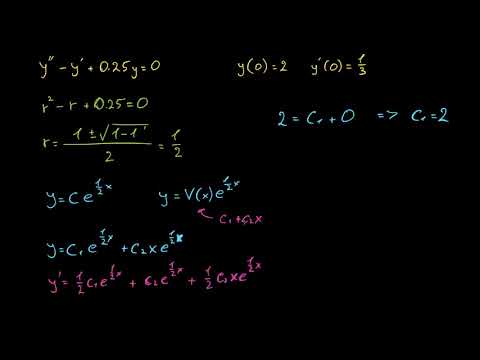 y'' - y' + 0.25y = 0
y(0) = 2 y'(0) = 1/3
r² - r + 0.25 = 0
2 = C₁ + 0 => C₁ = 2
r = (1 ± √(1-1))/2 = 1/2
y = C e^(1/2 x) y = V(x) e^(1/2 x)
C₁ + C₂x
y = C₁ e^(1/2 x) + C₂ x e^(1/2 x)
y' = 1/2 C₁ e^(1/2 x) + C₂ e^(1/2 x) + 1/2 C₂ x e^(1/2 x)